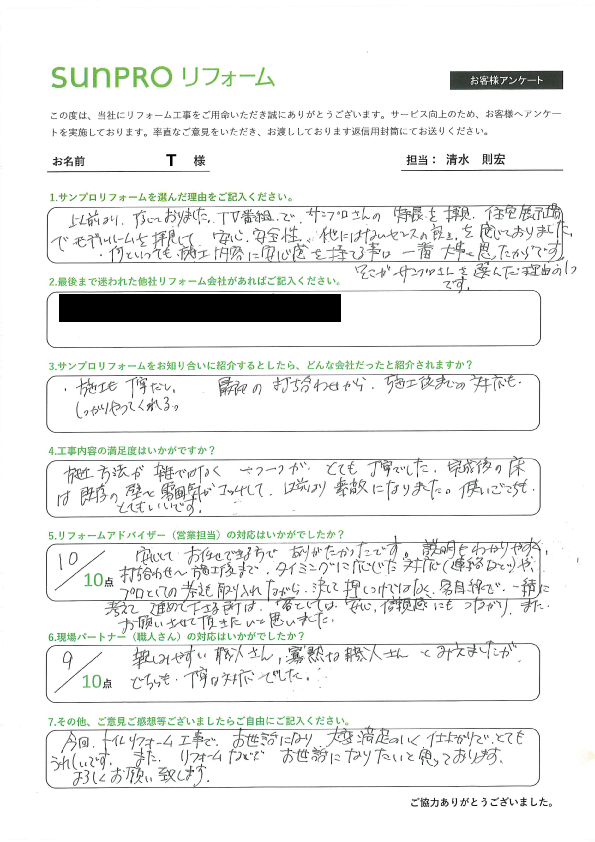 sunpro リフォーム
お客様アンケート
この度は、当社にリフォーム工事をご用命いただき誠にありがとうございます。サービス向上のため、お客様へアンケー
トを実施しております。率直なご意見をいただき、お渡ししております返信用封筒にてお送りください。
お名前 T 様 担当： 清水 則宏
1.サンプロリフォームを選んだ理由をご記入ください。
以前より、存じておりました。TV番組で、サンプロさんの特長を拝見、住宅展示場
でモデルルームを拝見して 安心、安全性、他にはないセンスの良さを感じておりました。
・何といっても施工内容に安心感を持てる事は一番大事と思ったからです。
そこがサンプロさんを選んだ理由の1つ
です。
2.最後まで迷われた他社リフォーム会社があればご記入ください。
3.サンプロリフォームをお知り合いに紹介するとしたら、どんな会社だったと紹介されますか？
・施工も丁寧だし、 最初の打ち合わせから、施工後までの対応も、
しっかりやってくれる。
4.工事内容の満足度はいかがですか？
施工方法が雑ではなく 一つ一つが、とても丁寧でした。完成後の床
は既存の壁と雰囲気がマッチして、以前より素敵になりました。使いごこちも
とてもいいです。
5.リフォームアドバイザー（営業担当）の対応はいかがでしたか？
10／10点
安心して お任せできる方で ありがたかったです。説明もわかりやすく、
打ち合わせ〜施工後まで、タイミングに応じた対応(連絡など)や、
プロとしての考えも取り入れながら、決して押しつけではなく、客目線で、一緒に
考えて進めて下さる所は、客としては、安心、信頼感にもつながり、また、
お願いさせて頂きたいと思いました。
6.現場パートナー（職人さん）の対応はいかがでしたか？
9／10点
親しみやすい職人さん、寡黙な職人さん とみえましたが、
どちらも、丁寧な対応でした。
7.その他、ご意見ご感想等ございましたらご自由にご記入ください。
今回、トイレリフォーム工事で、お世話になり 大変満足のいく仕上がりで、とても
うれしいです。また、リフォームなどで お世話になりたいと思っております。
よろしくお願い致します。
ご協力ありがとうございました。